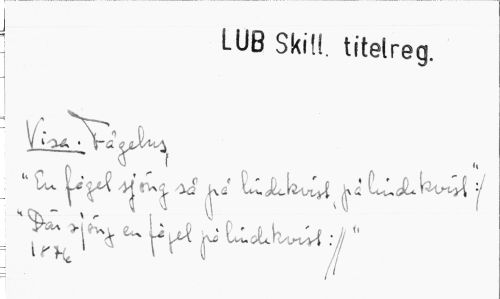 LUB Skill. titelreg.
Visa. Fågelns
"En fågel sjöng så på lindekvist, på lindekvist":/
"Där sjöng en fågel på lindekvist://"
1876